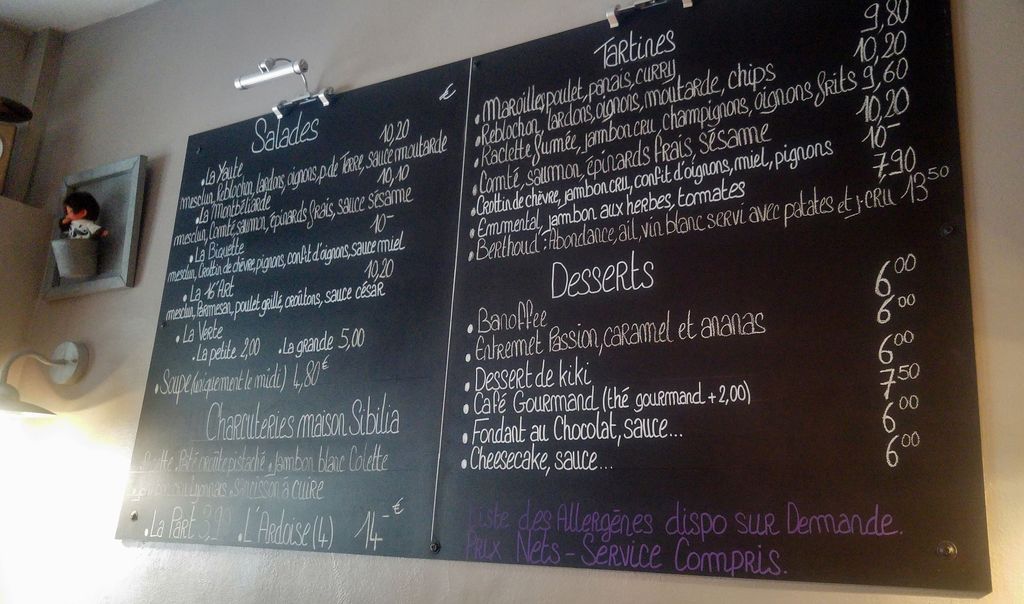 Salades
€
• La Yaute 10,20
mesclun, Reblochon, lardons, oignons, p.de Terre, sauce moutarde
• La Montbéliarde 10,10
mesclun, Comté, saumon, épinards frais, sauce sésame
• La Biquette 10-
mesclun, Crottin de chèvre, pignons, confit d'oignons, sauce miel
• La 16 Art 10,20
mesclun, Parmesan, poulet grillé, croûtons, sauce césar
• La Verte
• La petite 2,00 • La grande 5,00
• Soupe (uniquement le midi) 4,80€
Charcuteries maison Sibilia
Pâté croûte pistaché • Jambon blanc Colette
Lyonnais • Saucisson à cuire
• La Part 3,99 • L'Ardoise (4) 14-€
Tartines
• Maroilles, poulet, panais, curry 9,80
• Reblochon, lardons, oignons, moutarde, chips 10,20
• Raclette fumée, jambon cru, champignons, oignons frits 9,60
• Comté, saumon, épinards frais, sésame 10,20
• Crottin de chèvre, jambon cru, confit d'oignons, miel, pignons 10-
• Emmental, jambon aux herbes, tomates 7,90
• Berthoud : Abondance, ail, vin blanc servi avec patates et j.cru 13 50
Desserts
• Banoffee 6 00
• Entremet Passion, caramel et ananas 6 00
• Dessert de kiki 6 00
• Café Gourmand (thé gourmand +2,00) 7 50
• Fondant au Chocolat, sauce... 6 00
• Cheesecake, sauce... 6 00
Liste des Allergènes dispo sur Demande.
Prix Nets - Service Compris.